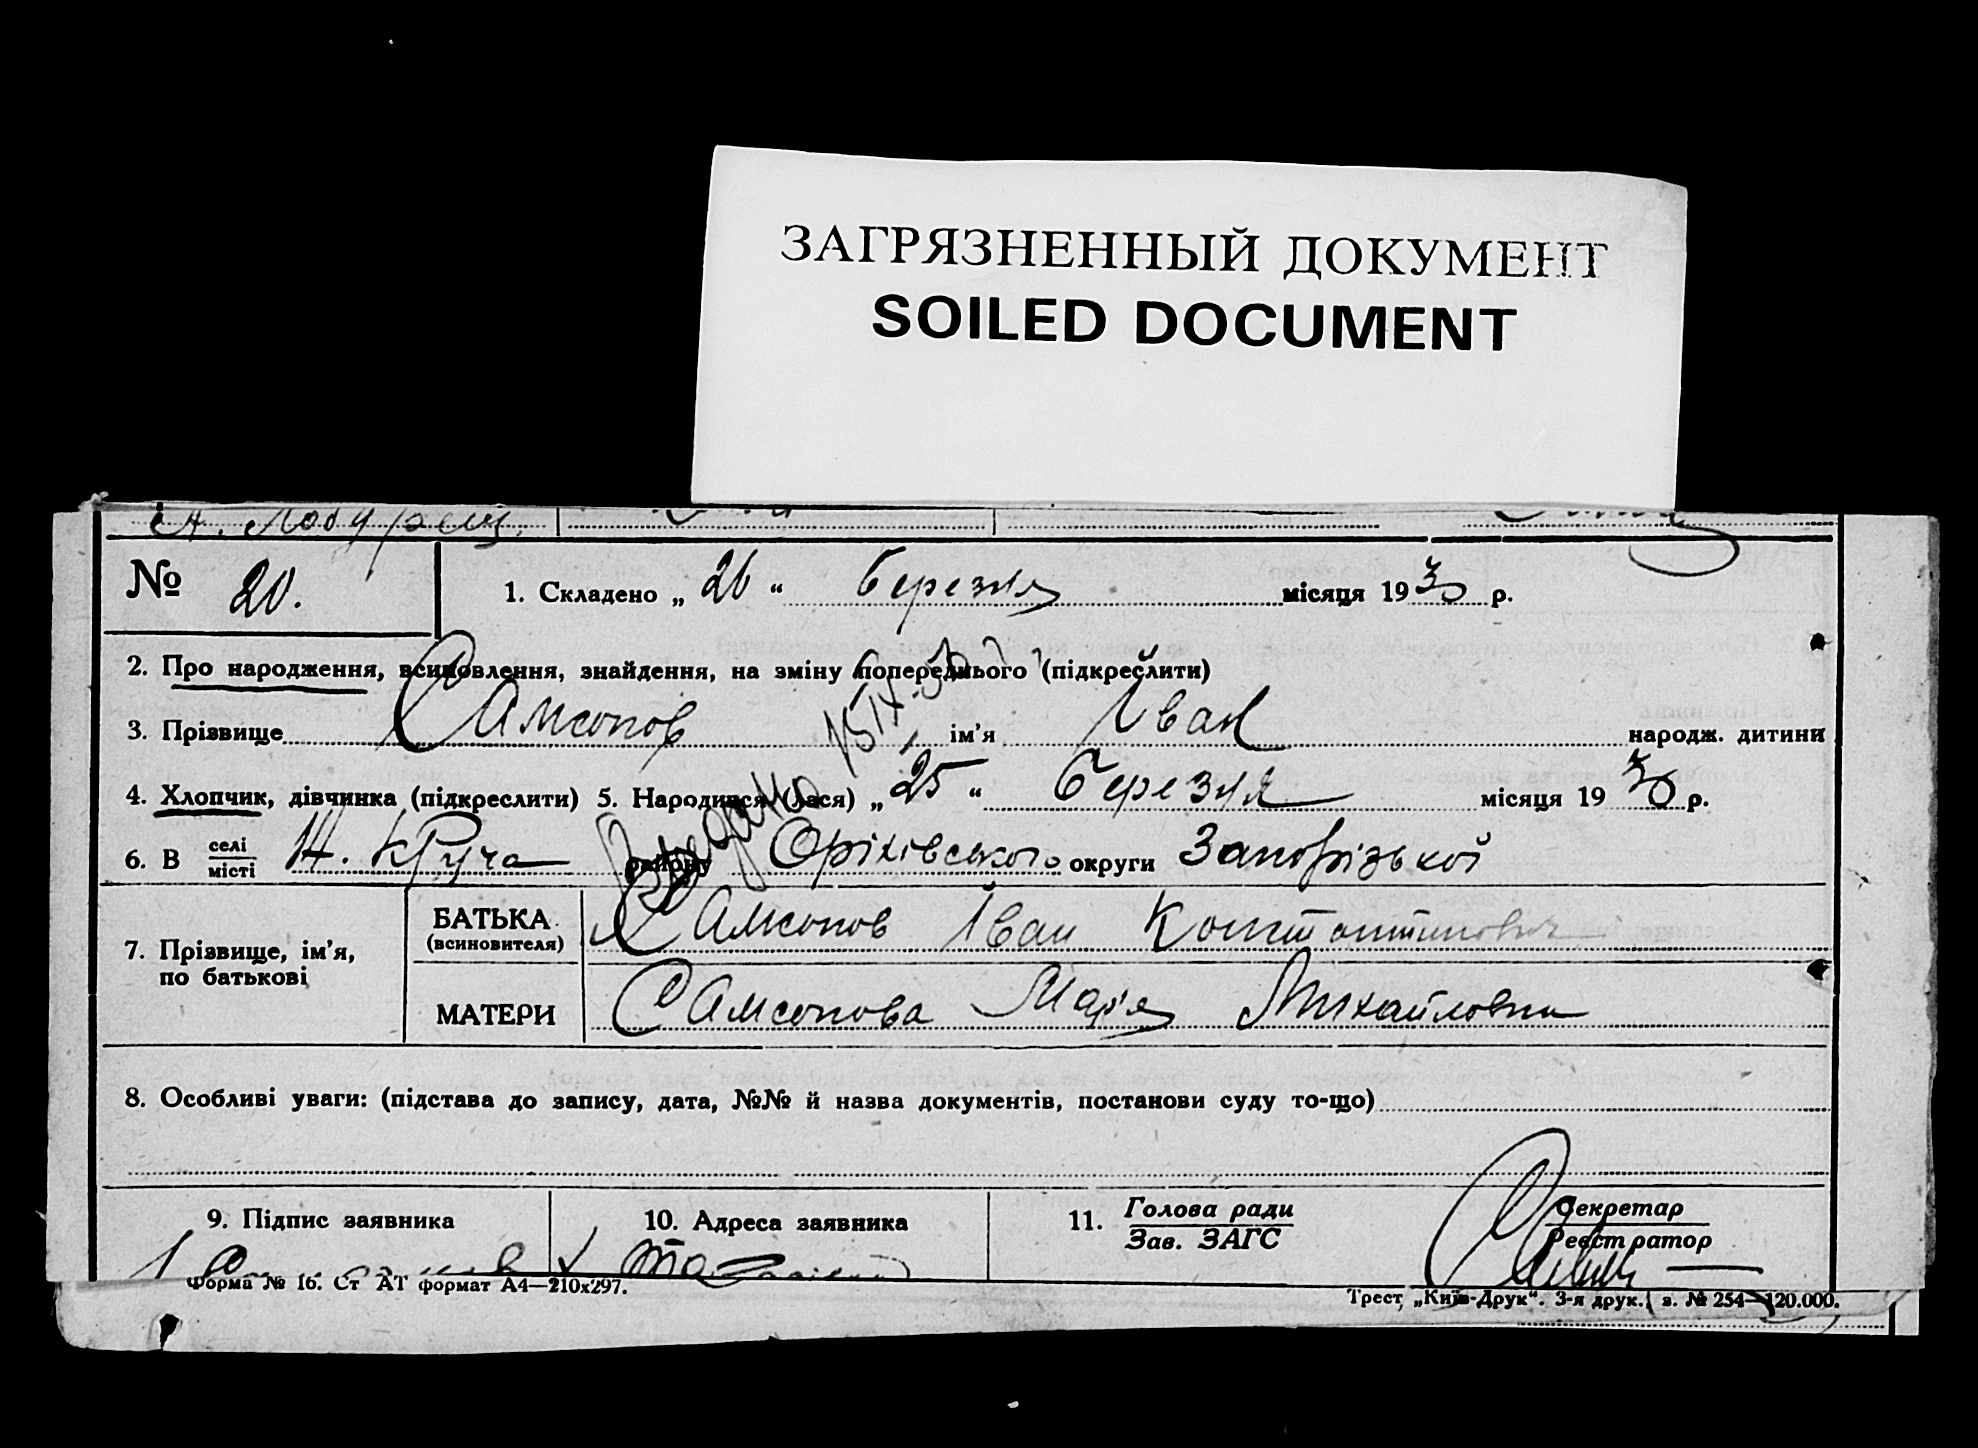 ЗАГРЯЗНЕННЫЙ ДОКУМЕНТ
SOILED DOCUMENT
№ 20. 1. Складено „ 26 “ березня місяця 1930 р.
2. Про народження, всиновлення, знайдення, на зміну попереднього (підкреслити)
3. Прізвище Самсонов ім'я Іван народж. дитини
4. Хлопчик, дівчинка (підкреслити) 5. Народився (лася) „ 25 “ березня місяця 1930 р.
6. В селі місті Н. Круча району Оріхівського округи Запорізької
Видано
7. Прізвище, ім'я, по батькові
БАТЬКА (всиновителя) Самсонов Іван Константинович
МАТЕРИ Самсонова Марія Михайловна
8. Особливі уваги: (підстава до запису, дата, №№ й назва документів, постанови суду то-що)
9. Підпис заявника 10. Адреса заявника 11. Голова ради Секретар
Зав. ЗАГС Реєстратор
Форма № 16. Ст АТ формат А4—210х297.
Трест „Київ-Друк“. 3-я друк. з. № 254—120.000.